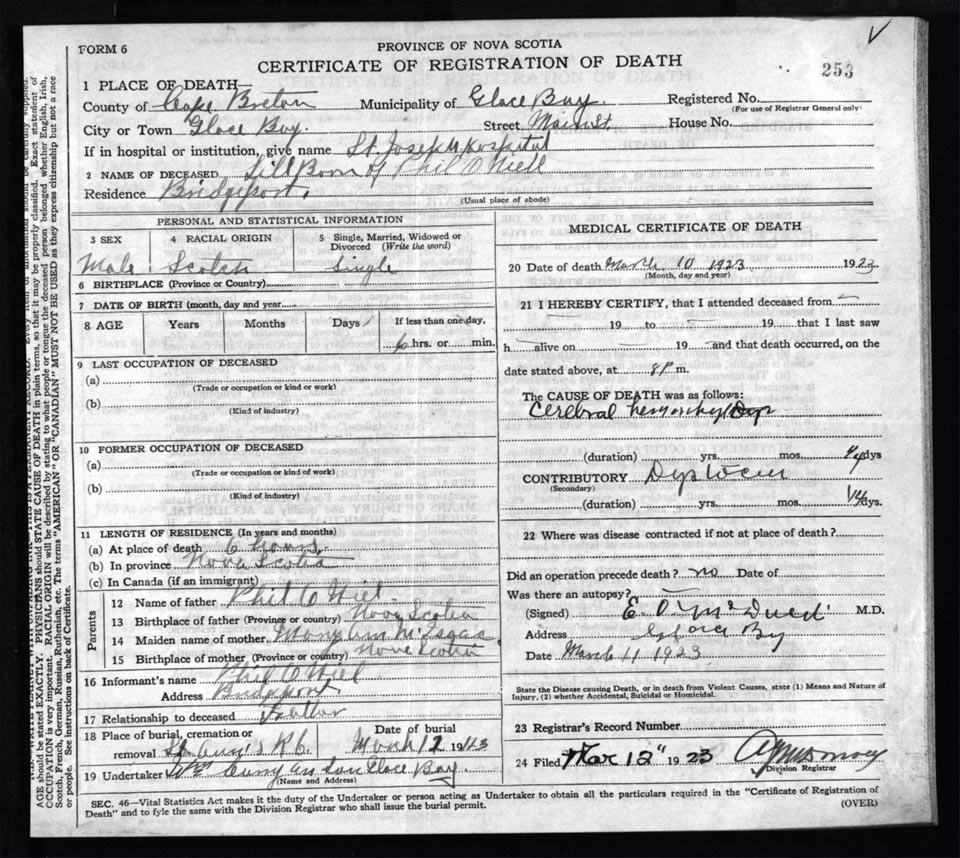 FORM 6
PROVINCE OF NOVA SCOTIA
CERTIFICATE OF REGISTRATION OF DEATH
253
1 PLACE OF DEATH—
County of Cape Breton Municipality of Glace Bay Registered No.
(For use of Registrar General only)
City or Town Glace Bay. Street House No.
If in hospital or institution, give name St. Joseph Hospital
2 NAME OF DECEASED Still Born of Phil O Niell
Residence Bridgeport.
(Usual place of abode)
PERSONAL AND STATISTICAL INFORMATION
3 SEX 4 RACIAL ORIGIN 5 Single, Married, Widowed or Divorced (Write the word)
Male Scotch Single
6 BIRTHPLACE (Province or Country)
7 DATE OF BIRTH (month, day and year
8 AGE Years Months Days If less than one day,
6 hrs. or min.
9 LAST OCCUPATION OF DECEASED
(a)
(Trade or occupation or kind or work)
(b)
(Kind of industry)
10 FORMER OCCUPATION OF DECEASED
(a)
(Trade or occupation or kind or work)
(b)
(Kind of industry)
11 LENGTH OF RESIDENCE (In years and months)
(a) At place of death 6 hours.
(b) In province Nova Scotia
(c) In Canada (if an immigrant)
Parents
12 Name of father Phil O Niel
13 Birthplace of father (Province or country) Nova Scotia
14 Maiden name of mother Mary Ann McIsaac
15 Birthplace of mother (Province or country) Nova Scotia
16 Informant's name Phil O Niel
Address Bridgeport
17 Relationship to deceased Father
18 Place of burial, cremation or Date of burial
removal St Ann's R.C. March 12 1923
19 Undertaker Wm Curry and Son Glace Bay.
(Name and Address)
MEDICAL CERTIFICATE OF DEATH
20 Date of death March 10 1923 1923
(Month, day and year)
21 I HEREBY CERTIFY, that I attended deceased from
19 to 19 that I last saw
h alive on 19 and that death occurred, on the
date stated above, at 8 P m.
The CAUSE OF DEATH was as follows:
Cerebral hemorrhage
(duration) yrs. mos. dys
CONTRIBUTORY Dystocia
(Secondary)
(duration) yrs. mos. 1/4 dys.
22 Where was disease contracted if not at place of death?
Did an operation precede death? no Date of
Was there an autopsy?
(Signed) M.D.
Address Glace Bay
Date March 11 1923
State the Disease causing Death, or in death from Violent Causes, state (1) Means and Nature of Injury, (2) whether Accidental, Suicidal or Homicidal.
23 Registrar's Record Number
24 Filed Mar 12" 1923
Division Registrar
SEC. 46—Vital Statistics Act makes it the duty of the Undertaker or person acting as Undertaker to obtain all the particulars required in the "Certificate of Registration of
Death" and to fyle the same with the Division Registrar who shall issue the burial permit.
(OVER)
AGE should be stated EXACTLY. PHYSICIANS should STATE CAUSE OF DEATH in plain terms, so that it may be properly classified. Exact statement of
OCCUPATION is very important. RACIAL ORIGIN will be described by stating to what people or tongue the deceased person belonged whether English, Irish,
Scotch, French, German, Russian, Ruthenian, etc. The terms "AMERICAN" OR "CANADIAN" MUST NOT BE USED as they express citizenship but not a race
or people. See instructions on back of Certificate.